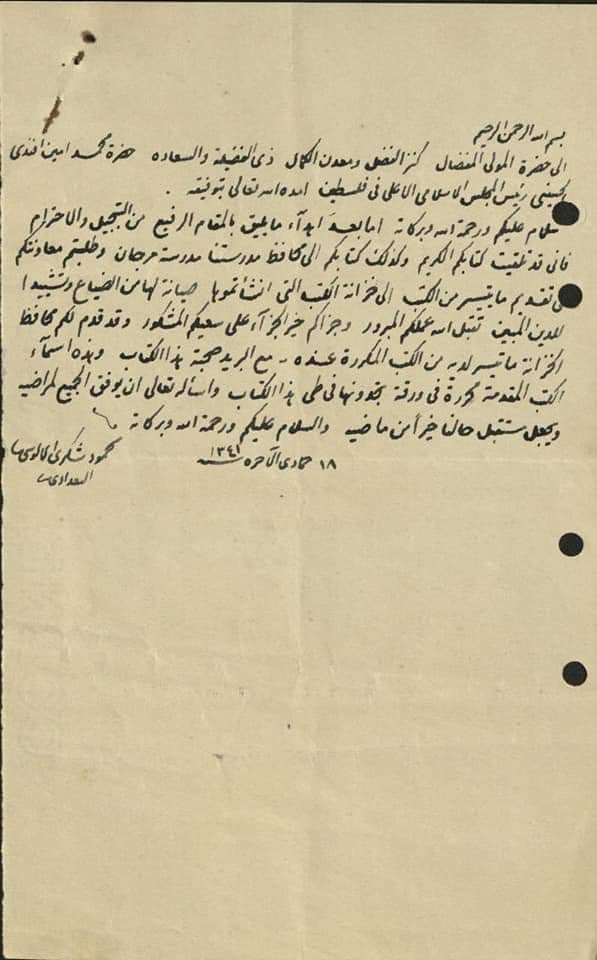 بسم الله الرحمن الرحيم
الى حضرة المولى المفضال كنز الفضل ومعدن الكمال ذى الفضيلة والسعاده حضرة محمد امين افندى
الحسيني رئيس المجلس الاسلامى الاعلى فى فلسطين امده الله تعالى بتوفيقه .
سلام عليكم ورحمة الله وبركاته اما بعد ابدآء ما يليق بالمقام الرفيع من التبجيل والاحترام
فانى قد تلقيت كتابكم الكريم وكذلك كتابكم الى محافظ مدرستنا مدرسة مرجان وطلبتم معاونتكم
فى تقديم ما يتيسر من الكتب الى خزانة الكتب التى انشأتموها صيانة لها من الضياع وتشييدا
للدين المبين تقبل الله عملكم المبرور وجزاكم خير الجزآء على سعيكم المشكور وقد قدم لكم محافظ
الخزانة ما تيسر لديه من الكتب المكررة عنده مع البريد صحبة هذا الكتاب وهذه اسمآء
الكتب المقدمة محررة فى ورقة تجدونها فى طى هذا الكتاب واسأله تعالى ان يوفق الجميع لمراضيه
ويجعل مستقبل حالنا خيرا من ماضيه والسلام عليكم ورحمة الله وبركاته
١٨ جمادى الآخره سنه ١٣٤١
محمود شكرى الالوسى
البغدادى